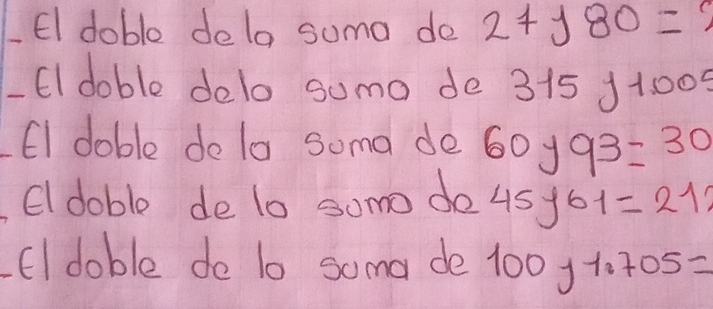 - El doble de la suma de 27 y 80 =
- El doble de la suma de 315 y 1.005
- El doble de la suma de 60 y 93 = 30
- El doble de la suma de 45 y 61 = 212
- El doble de la suma de 100 y 1.705 =